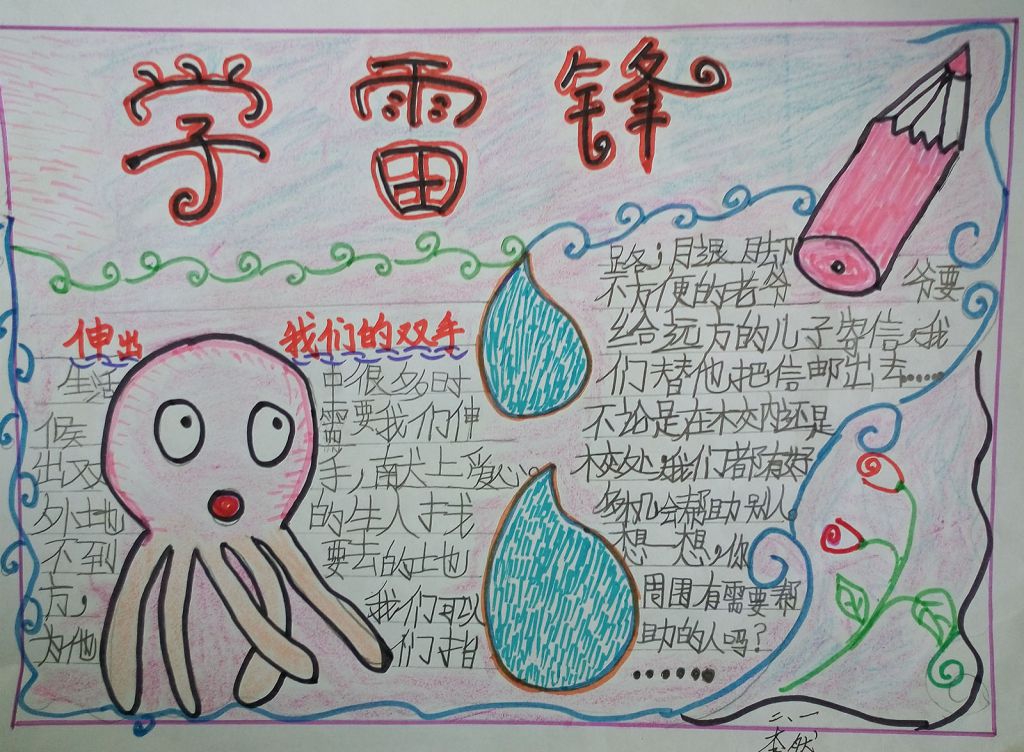 学雷锋
伸出我们的双手
生活中很多时
候需要我们伸
出双手,献上爱心。
外地的生人找
不到要去的土地
方,我们可以
为他们指
路;月退月却
不方便的老爷爷要
给远方的儿子寄信,我
们替他把信邮出去……
不论是在校内还是
校处,我们都有好
多机会帮助别人。
想一想,你
周围有需要帮
助的人吗?
……
二、一
李然